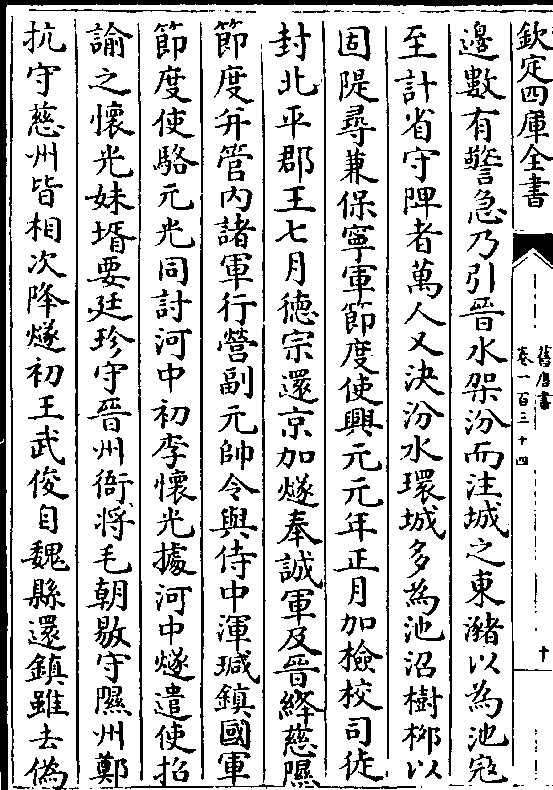 欽定四庫全書
舊唐書
卷一百三十四
十
邊數有警急乃引晉水架汾而注城之東瀦以為池寇
至計省守陴者萬人又決汾水環城多為池沼樹栁以
固隄尋兼保寧軍節度使興元元年正月加檢校司徒
封北平郡王七月德宗還京加燧奉誠軍及晉絳慈隰
節度并管內諸軍行營副元帥令與侍中渾瑊鎮國軍
節度使駱元光同討河中初李懷光據河中燧遣使招
諭之懷光妹壻要廷珍守晉州衙將毛朝敭守隰州鄭
抗守慈州皆相次降燧初王武俊自魏縣還鎮雖去偽